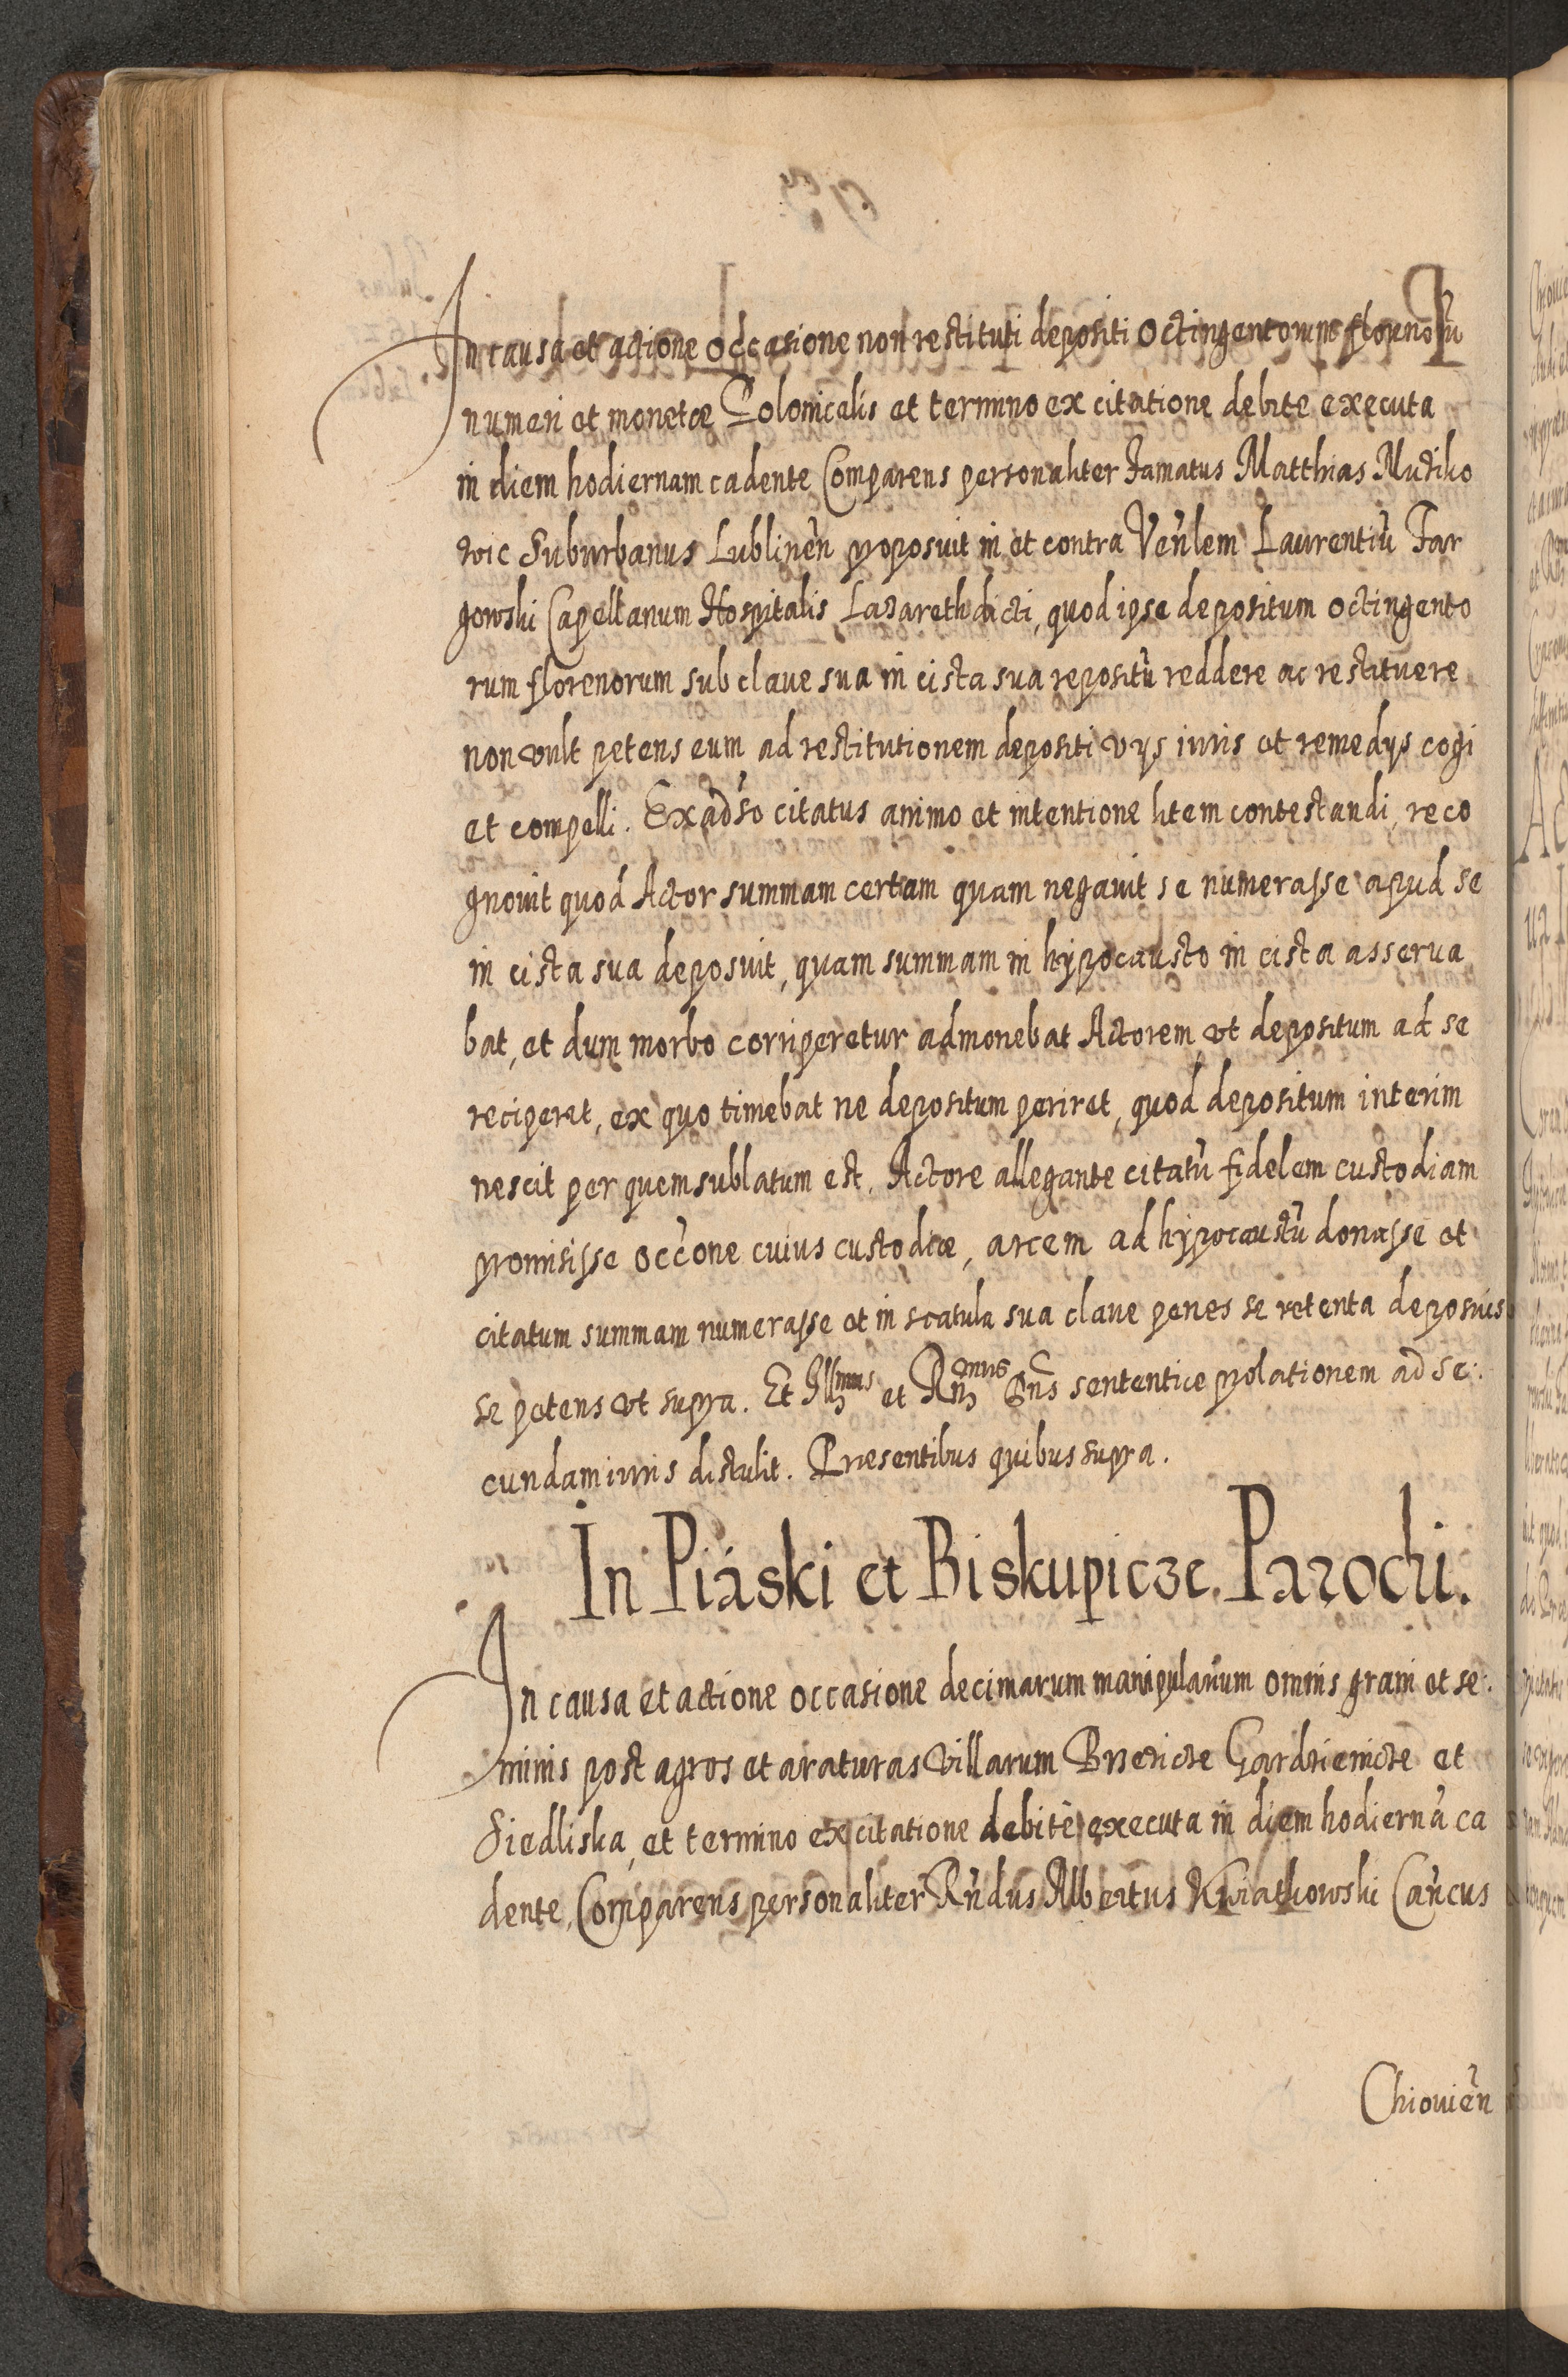 In causa et actione occasione non restituti depositi octingentorum florenorũ
numeri et monetæ Polonicalis et termino ex citatione debite executa
in diem hodiernam cadente Comparens personaliter Famatus Matthias
Suburbanus Lublineñ proposuit in et contra Veñlem Laurentiũ Tar
gowski Capellanum Hospitalis Lazareth dicti, quod ipse depositum octingento
rum florenorum sub claue sua in cista sua repositũ reddere ac restituere
non vult petens eum ad restitutionem depositi vÿs iuris et remedÿs cogi
et compelli. Ex adṽso citatus animo et intentione litem contestandi, reco
gnouit quod Actor summam certam quam negauit se numerasse apud se
in cista sua deposuit, quam summam in hypocausto in cista asserua
bat, et dum morbo corriperetur admonebat Actorem, vt depositum ad se
reciperet, ex quo timebat ne depositum periret, quod depositum interim
nescit per quem sublatum est. Actore allegante citatũ fidelem custodiam
promisisse occ̃one cuius custodiæ, arcem ad hypocaustũ donasse et
citatum summam numerasse et in scatula sua claue penes se retenta deposuis
se petens vt supra. Et Illmus et Rñmus Dñs sententiæ prolationem ad se:
cundam iuris distulit. Præsentibus quibus supra.
In Piaski et Biskupicze Parochi.
In causa et actione occasione decimarum manipularium omnis grani et se:
minis post agros et araturas Villarum Brzezicze Gardzienicze et
Siedliska, et termino ex citatione debitè executa in diem hodiernã ca
dente, Comparens personaliter Rñdus Albertus Kwiatkowski Cañcus
Chiouieñ